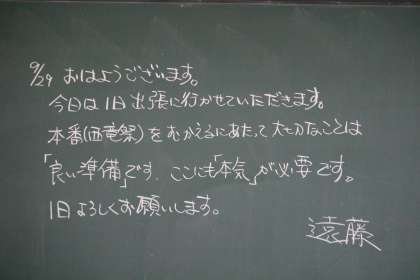 9/29 おはようございます。
今日は1日出張に行かせていただきます。
本番(西竜祭)をむかえるにあたって大切なことは
「良い準備」です。ここにも「本気」が必要です。
1日よろしくお願いします。
遠藤